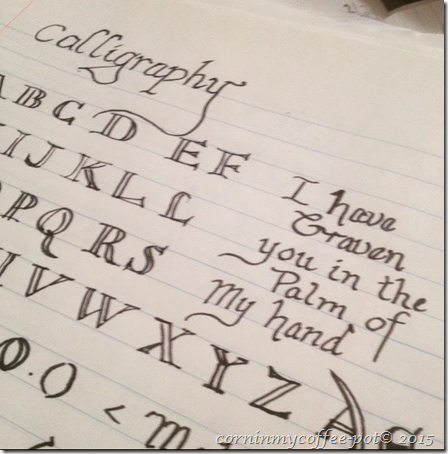 Calligraphy
A B C D E F
I J K L L
P Q R S
I have
Graven
you in the
Palm of
my hand
V W X Y Z
corninmycoffee-pot© 2015